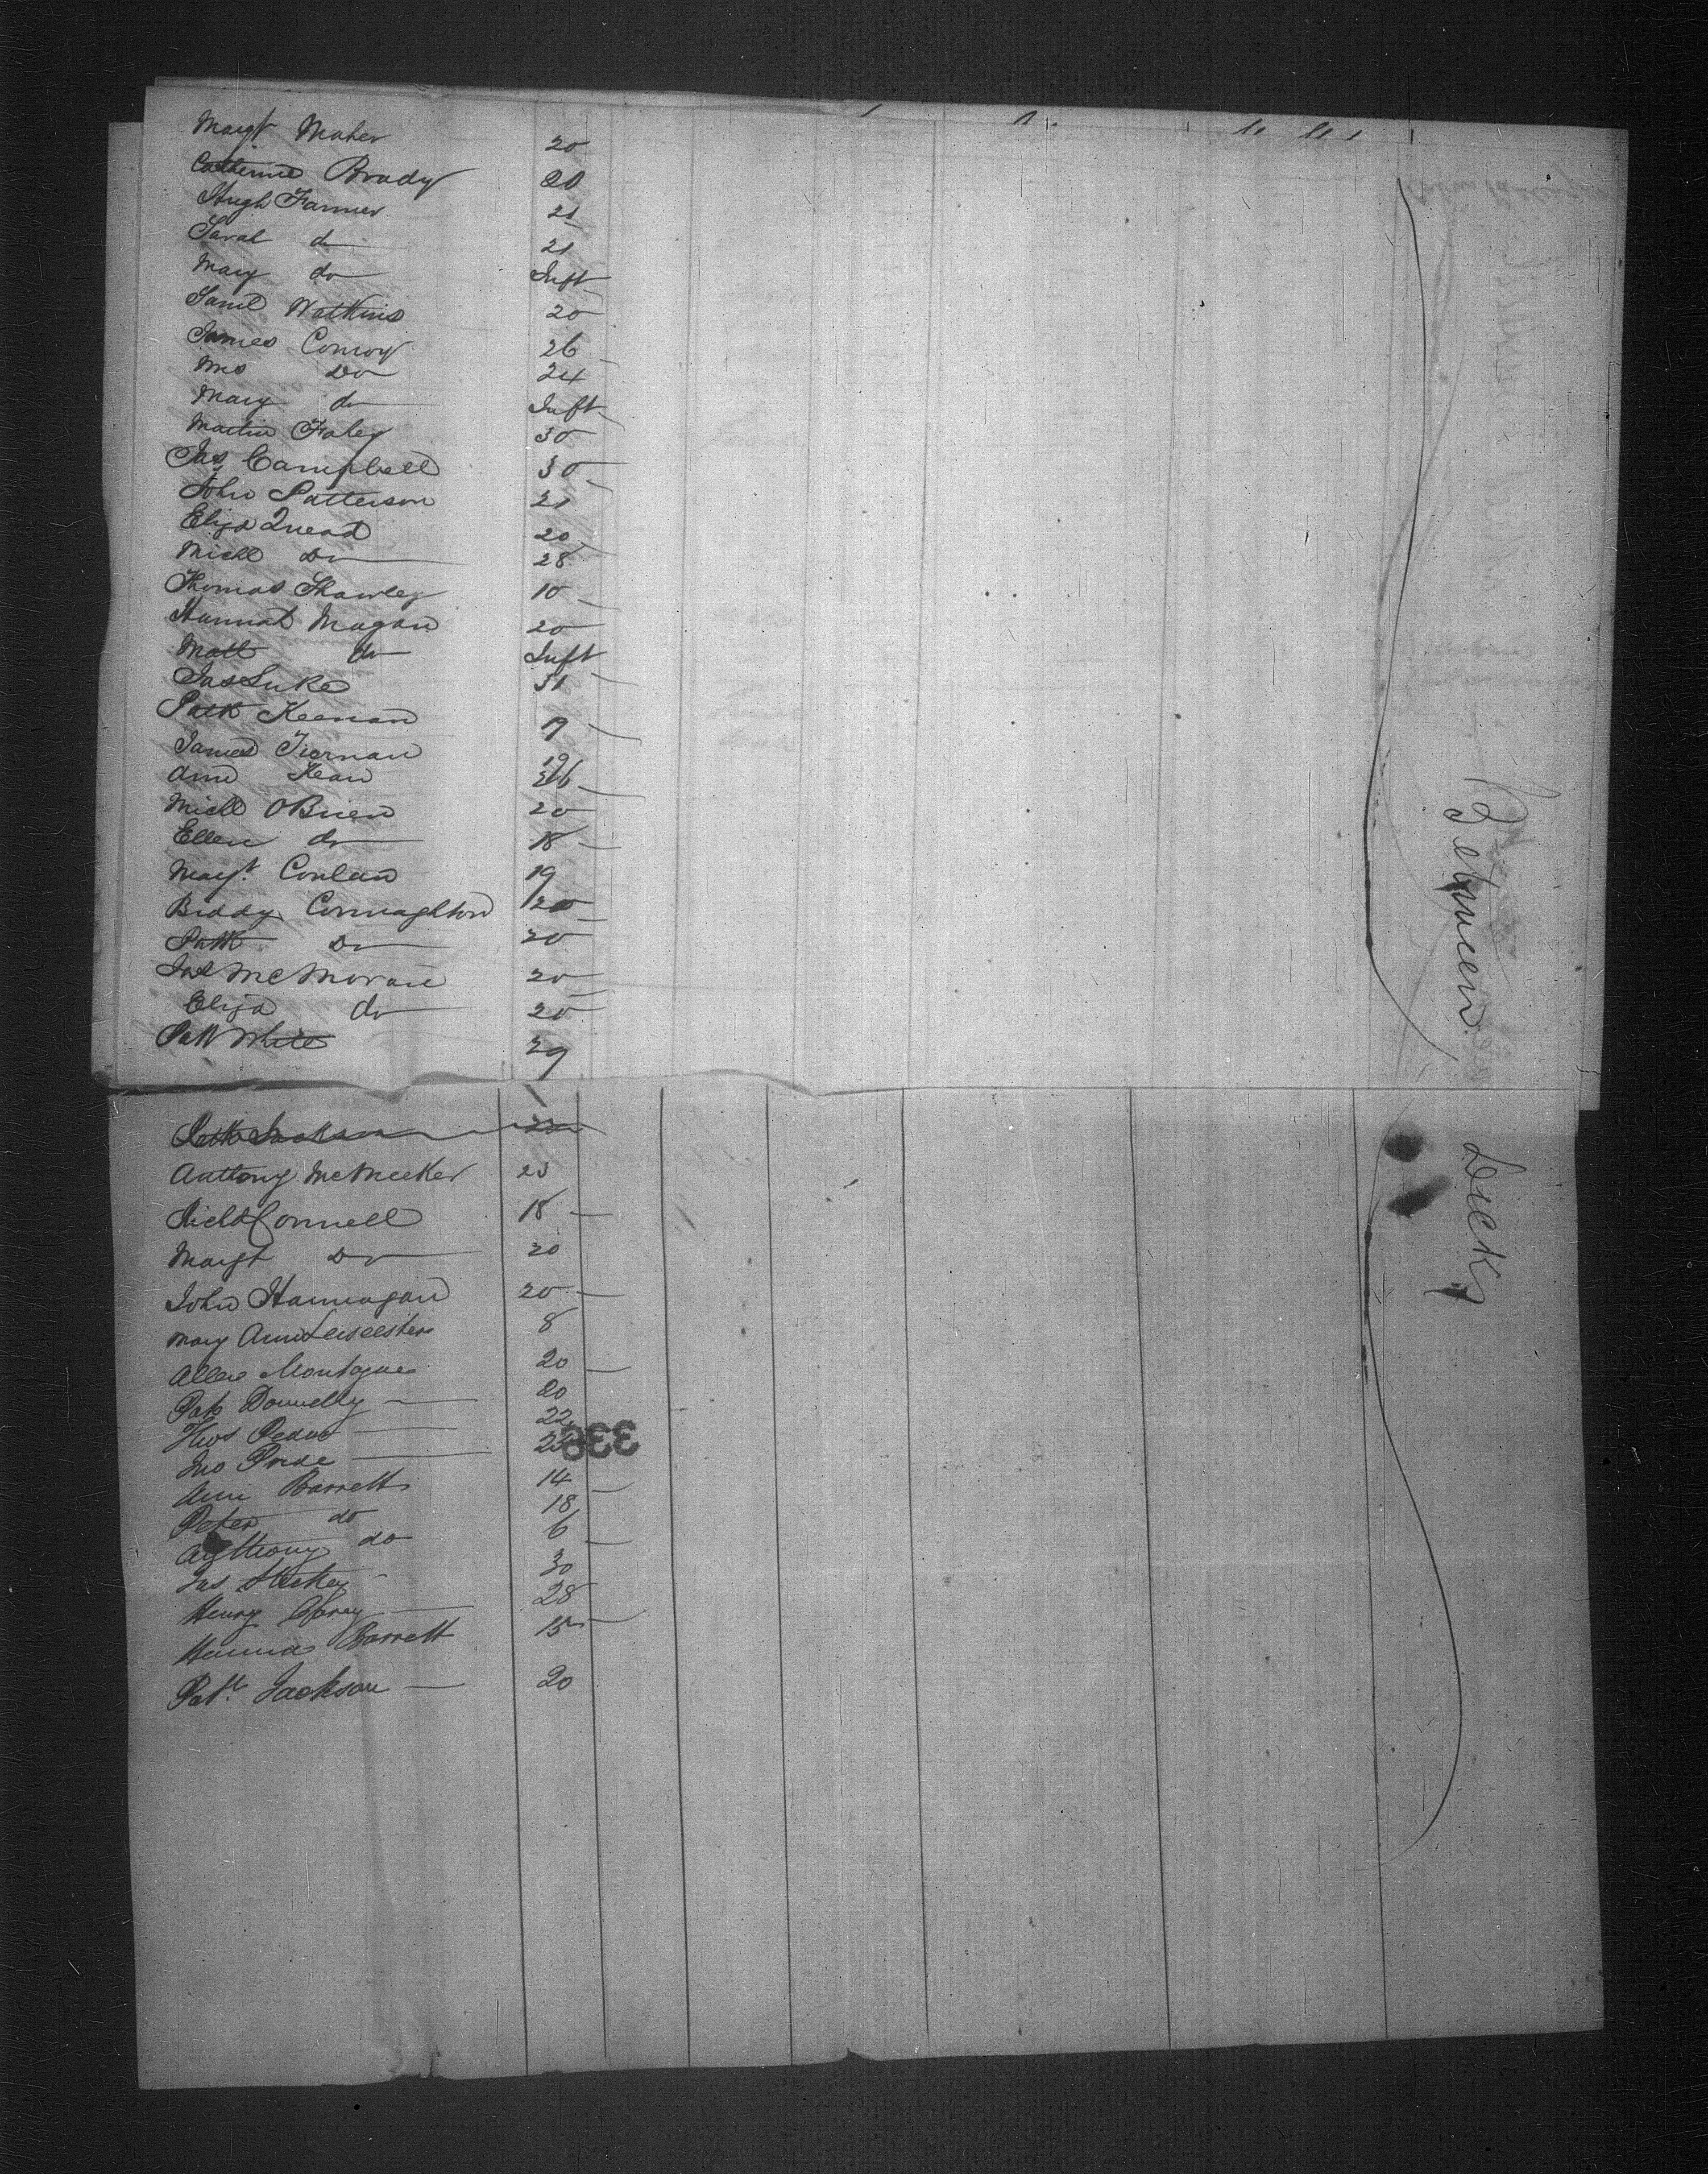 Margt Maher 20
Catherine Brady 20
Hugh Farmer 21
Sarah do 21
Mary do Inft
Saml Watkins 20
James Conroy 26
Mrs Do 24
Mary do Inft
Martin Foley 30
Jas Campbell 30
John Patterson 21
Eliza Quead 20
Michl Do 28
Thomas Shawley 10
Hannah Magan 20
Matt do Inft
Jas Luke 31
Patk Keenan 19
James Tiernan 19
Ann Kean
Michl OBrien 20
Ellen do 18
Margt. Conlan 19
Biddy Connaghton 20
Patk Do 20
Jas McMoran 20
Eliza do 20
Patk White 29
Patk Jackson 22
Anthony McMeeker 23
Richd Connell 18
Margt Do 20
John Hannagan 20
Mary Ann Leiseester 8
Allen Montague 20
Pat Donnelly 20
Thos Pedur 22
Jno Pride 23
Ann Barrett 14
Peter do 18
Anthony do 6
Jas Hickey 30
Henry Carey 28
Hanna Barrett 15
Patk. Jackson 20
Between
Decks